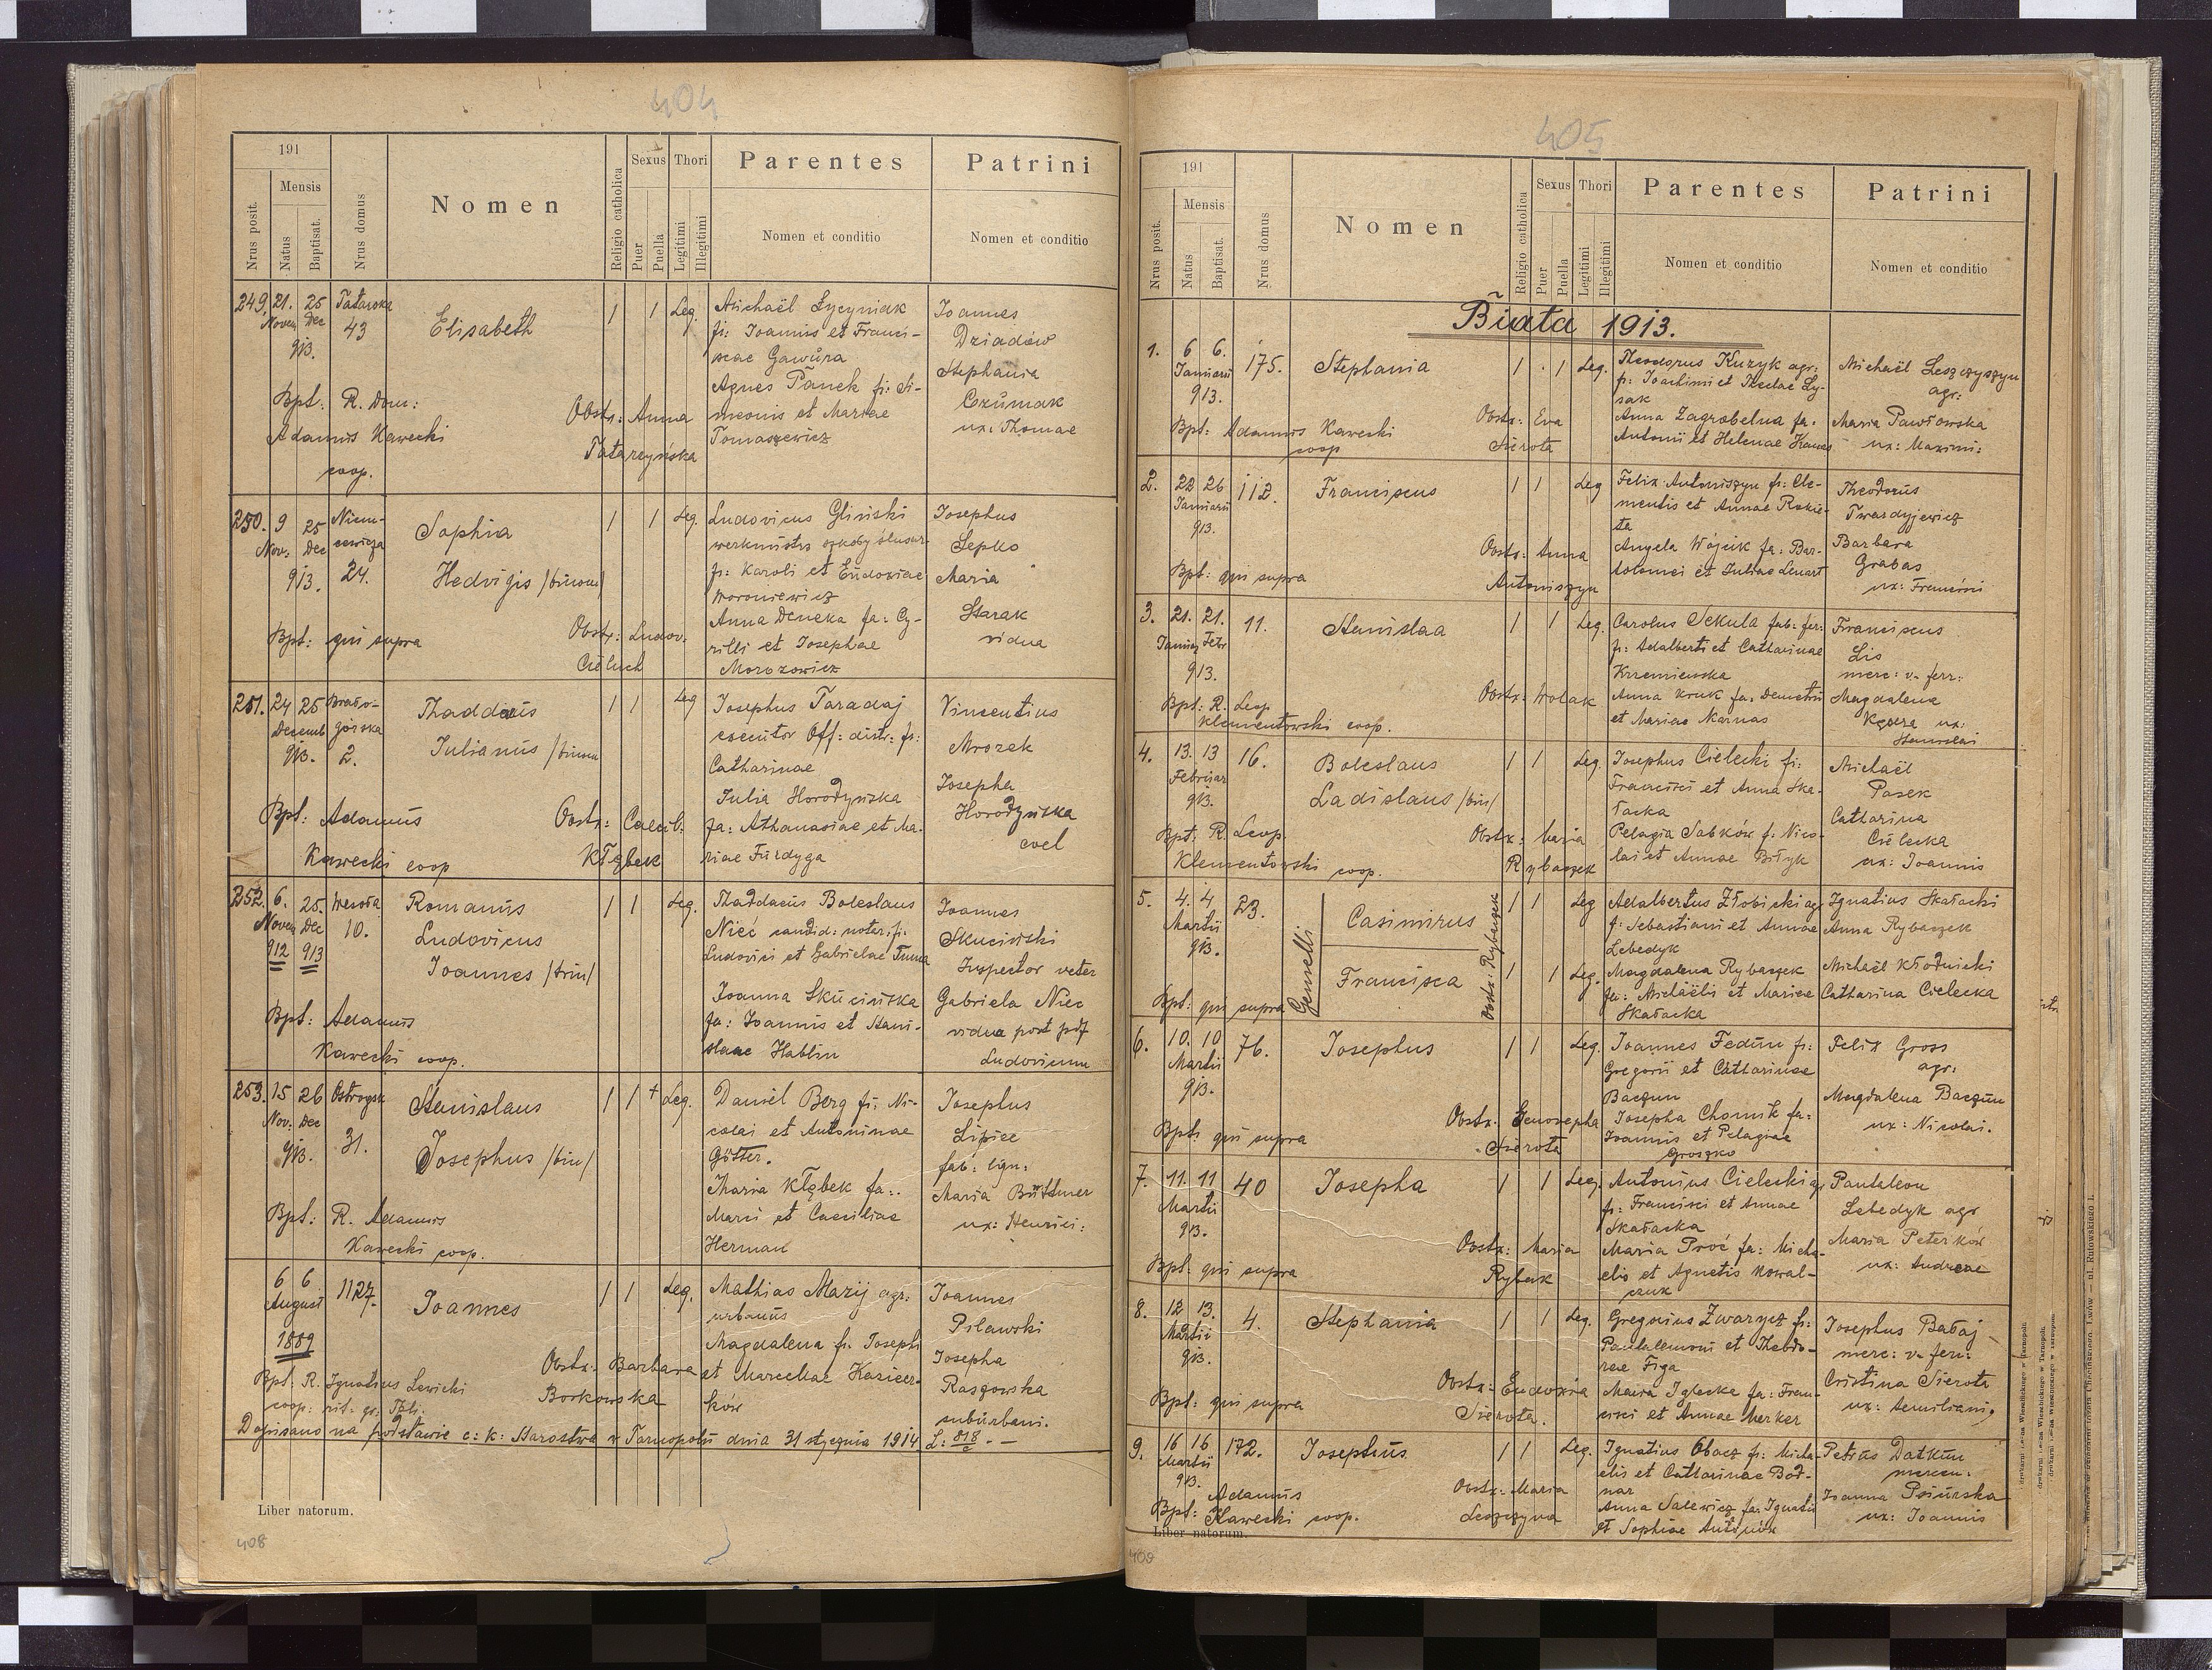 404
191
Mensis
Nrus posit.
Natus
Baptisat.
Nrus domus
Nomen
Religio catholica
Sexus
Puer
Puella
Thori
Legitimi
Illegitimi
Parentes
Nomen et conditio
Patrini
Nomen et conditio
249. 21. 25 Tatarska
Novem Dec 43
913.
Elisabeth
1 1 Leg.
Michaël Łycyniak
fi: Joannis et Franci-
scae Gawura
Agnes Panek fi: Si-
meonis et Mariae
Tomaszewicz
Joannes
Dziadów
Stephania
Czumak
ux: Thomae
Bpt: R. Dom:
Adamus Kawecki
coop.
Obstr: Anna
Tatarzyńska
250. 9 25 Niem-
Nov: Dec cewicza
913. 24.
Sophia
Hedvigis /binom/
1 1 Leg.
Ludovicus Gliński
werkmistrz szkoły ślusar
fi: Karoli et Eudoxiae
Woroniewicz
Anna Deneka fa: Cy-
rilli et Josephae
Morozowicz
Josephus
Łepko
Maria
Starak
vidua
Bpt: qui supra
Obstr: Ludov:
Cieluch
251. 24 25
Decemb górska
913. 2.
Thaddaeus
Julianus /binom
1 1 Leg
Josephus Taradaj
executor Off: distr: fi:
Catharinae
Julia Horodyńska
fa: Athanasiae et Ma-
riae Furdyga
Vincentius
Mrozek
Josepha
Horodyńska
coel
Bpt: Adamus
Kawecki coop
Obstr: Caecil:
Kłębek
252. 6. 25. Wesoła
Novem Dec 10.
912 913
Romanus
Ludovicus
Joannes /trin/
1 1 Leg.
Thaddaeus Boleslaus
Nieć candid: notar: fi:
Ludovici et Gabrielae Tuma
Joanna Skucińska
fa: Joannis et Stani-
slaae Hablin
Joannes
Skuciński
Inspector veter
Gabriela Niec
vidua post pdf
Ludovicum
Bpt: Adamus
Kawecki coop.
253. 15 26 Ostrogsk
Nov: Dec 31.
913.
Stanislaus
Josephus /bin/
1 1 + Leg.
Daniel Berg fi: Ni-
colai et Antoninae
Götter.
Maria Kłębek fa:
Marci et Caeciliae
Herman
Josephus
Lipiec
fab: lign:
Maria Büttner
ux: Henrici:
Bpt: R. Adamus
Kawecki coop.
6 6 1127.
August
1889
Joannes
1 1 Leg.
Mathias Mazij agr:
urbanus
Magdalena fi. Josephi
et Marcellae
ków
Joannes
Pilawski
Josepha
Rasgowska
suburbani.
Bpt: R. Ignatius Lewicki
coop: rit: gr:
Obstr: Barbara
Borkowska
Dopisano na podstawie c: k: Starostwa w Tarnopolu dnia 31 stycznia 1914 L: 818. —
Liber natorum.
408
405
191
Mensis
Nrus posit.
Natus
Baptisat.
Nrus domus
Nomen
Religio catholica
Sexus
Puer
Puella
Thori
Legitimi
Illegitimi
Parentes
Nomen et conditio
Patrini
Nomen et conditio
Biała 1913.
1. 6 6. 175.
Januarii
913.
Stephania
1 . 1 Leg.
Theodorus Kuzyk agr:
fi: Joachimi et Theclae Ły-
sak
Anna Zagrobelna fa.
Antonii et Helenae
Michaël Leszczyszyn
agr:
Maria Pawłowska
ux: Maximi:
Bpt: Adamus Kawecki
coop
Obstr: Eva
Sierota
2. 22 26 112.
Januarii
913.
Franciscus
1 1 Leg
Felix Antoniszyn fi: Cle-
mentis et Annae
ta
Angela Wójcik fa: Bar-
tolomei et Juliae Lenart
Theodorus
Twardyjewicz
Barbara
Grabas
ux: Francisci
Bpt: qui supra
Obstr: Anna
Antoniszyn
3. 21. 21. 11.
Januar Febr
913.
Stanislaa
1 1 Leg.
Carolus Sekula fab: ferr:
fi: Adalberti et Catharinae
Krzemienska
Anna Kruk fa: Demetrii
et Mariae Karnas
Franciscus
Lis
merc: v. ferr:
Magdalena
ux:
Stanislai
Bpt: R. Leop.
Klementowski coop.
Obstr: Wolak
4. 13. 13 16.
Februar
913.
Boleslaus
Ladislaus /bin/
1 1 Leg.
Josephus Cielecki fi:
Francisci et Anna Ska-
łacka
Pelagia Sabków f: Nico-
lai et Annae Biłyk
Michaël
Pasek
Catharina
Cielecka
ux: Joannis
Bpt. R. Leop.
Klementowski coop.
Obstr: Maria
Rybaczek
5. 4. 4 23.
Martii
913.
Gemelli
Casimirus
Francisca
Obstr: Rybaczek
1 1 Leg
1 1 Leg.
Adalbertus Złobicki ag.
f: Sebastiani et Annae
Lebedyk
Magdalena Rybaczek
fa: Michaëlis et Mariae
Skałacka
Ignatius Skałacki
Anna Rybaczek
Michaël Kłodnicki
Catharina Cielecka
Bpt: qui supra
6. 10. 10 76.
Martii
913.
Josephus
1 1 Leg.
Joannes Fedun fi:
Gregorii et Catharinae
Baczun
Josepha Chomik fa:
Joannis et Pelagiae
Groszko
Felix Gross
agr:
Magdalena Baczun
ux: Nicolai.
Bpt: qui supra
Obstr. Genosepha
Sierota
7. 11. 11 40
Martii
913.
Josepha
1 1 Leg.
Antonius Cielecki ag.
fi: Francisci et Annae
Skałacka
Maria Proć fa: Micha-
elis et Agnetis Kowal-
czuk
Pantaleon
Lebedyk agr
Maria Peterków
ux: Andreae
Bpt: qui supra
Obstr: Maria
Rybak
8. 12 13. 4.
Martii
913.
Stephania
1 1 Leg.
Gregorius Zwarycz fi:
Pantalemoni et Theodo-
rae Figa
Maria Iglecka fa: Fran-
cisci et Annae Merker
Josephus Bałaj
merc: v. ferr:
Cristina Sierota
ux: Aemiliani,
Bpt: qui supra
Obstr: Eudoxia
Sierota.
9. 16 16 172.
Martii
913.
Josephus
1 1 Leg.
Ignatius Obacz fi: Micha-
elis et Catharinae Bod-
nar
Anna Salewicz fa: Ignatii
et Sophiae Antonów
Petrus Datkun
mercen:
Joanna Psiurska
ux: Joannis
Bpt: Adamus
Kawecki coop.
Obstr: Maria
Leszczyna
Liber natorum.
409